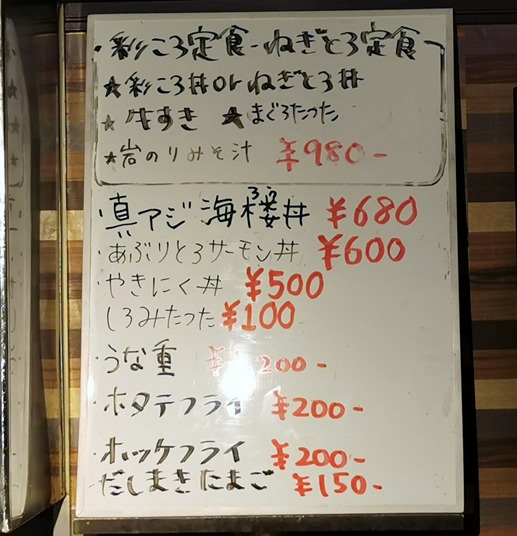 ・彩ころ定食・ねぎとろ定食
★彩ころ丼orねぎとろ丼
★牛すき ★まぐろたつた
★岩のりみそ汁 ¥980-
・真アジ海楼丼 ¥680
・あぶりとろサーモン丼 ¥600
・やきにく丼 ¥500
・しろみたつた ¥100
・うな重 200-
・ホタテフライ ¥200-
・ホッケフライ ¥200-
だしまきたまご ¥150-